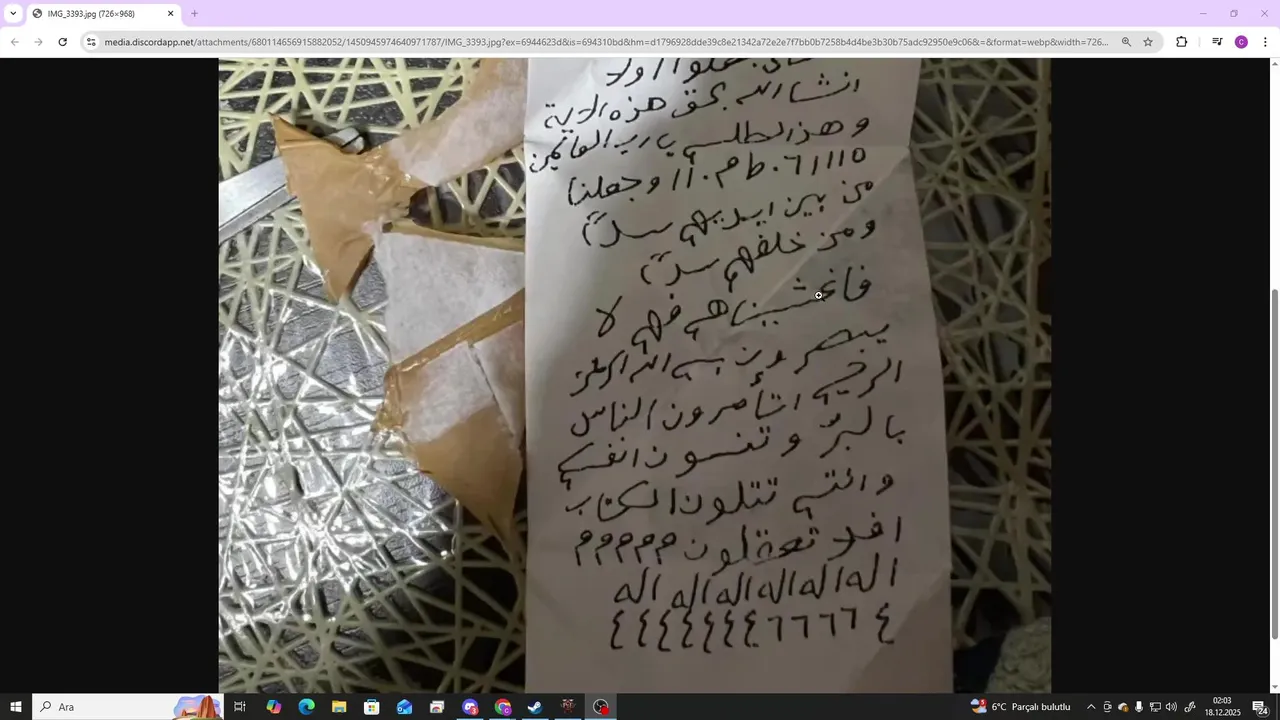 IMG_3393.jpg (726×968)
media.discordapp.net/attachments/680114656915882052/1450945974640971787/IMG_3393.jpg?ex=6944623d&is=694310bd&hm=d1796928dde39c8e21342a72e2e7f7bb0b7258b4d4be3b30b75adc92950e9c06&=&format=webp&width=726...
انشاالله بحق هذه الاية
وهذالطلسم يارب العالمين
١١١٥ ٠٦ ط م ٠١١ وجعلنا
من بين ايديهم سدًا
ومن خلفهم سدًا
فاغشيناهم فهم لا
يبصرون بسم الله الرحمن
الرحيم اتأمرون الناس
بالبرّ وتنسون انفسكم
وانتم تتلون الكتاب
افلا تعقلون م م م م م
اله اله اله اله اله اله
٤ ٦ ٦ ٦ ٦ ٤ ٤ ٤ ٤ ٤ ٤ ٤
Ara
6°C Parçalı bulutlu
02:03
18.12.2025